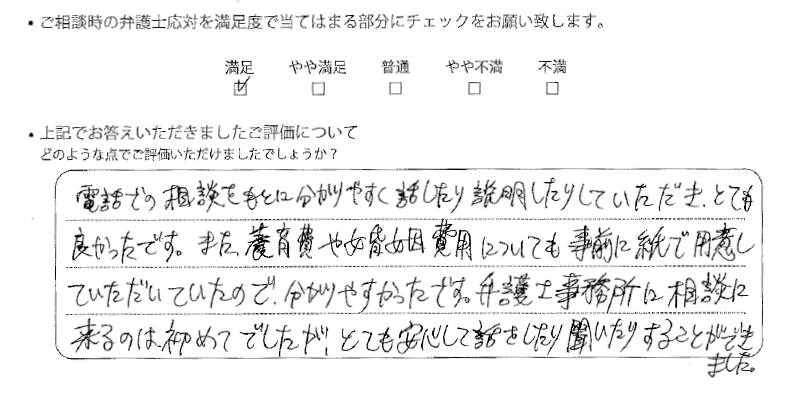 ・ご相談時の弁護士応対を満足度で当てはまる部分にチェックをお願い致します。
満足 やや満足 普通 やや不満 不満
☑ □ □ □ □
・上記でお答えいただきましたご評価について
どのような点でご評価いただけましたでしょうか？
電話での相談をもとに分かりやすく話したり説明したりしていただき、とても
良かったです。また、養育費や婚姻費用についても事前に紙で用意し
ていただいていたので、分かりやすかったです。弁護士事務所に相談に
来るのは初めてでしたが、とても安心して話をしたり聞いたりすることができ
ました。